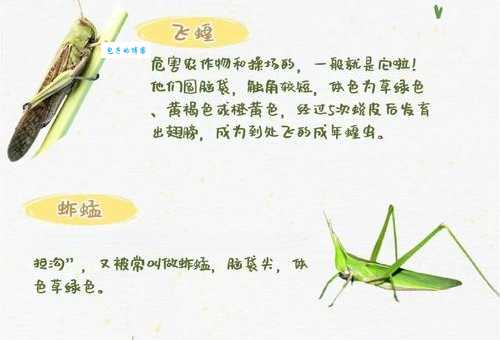 飞蝗
危害农作物和操场的，一般就是它啦！
他们圆脑袋，触角较短，体色为草绿色
、黄褐色或橙黄色，经过5次蜕皮后发育
出翅膀，成为到处飞的成年蝗虫。
蚱蜢
担沟”，又被常叫做蚱蜢，脑袋尖，体
色草绿色。